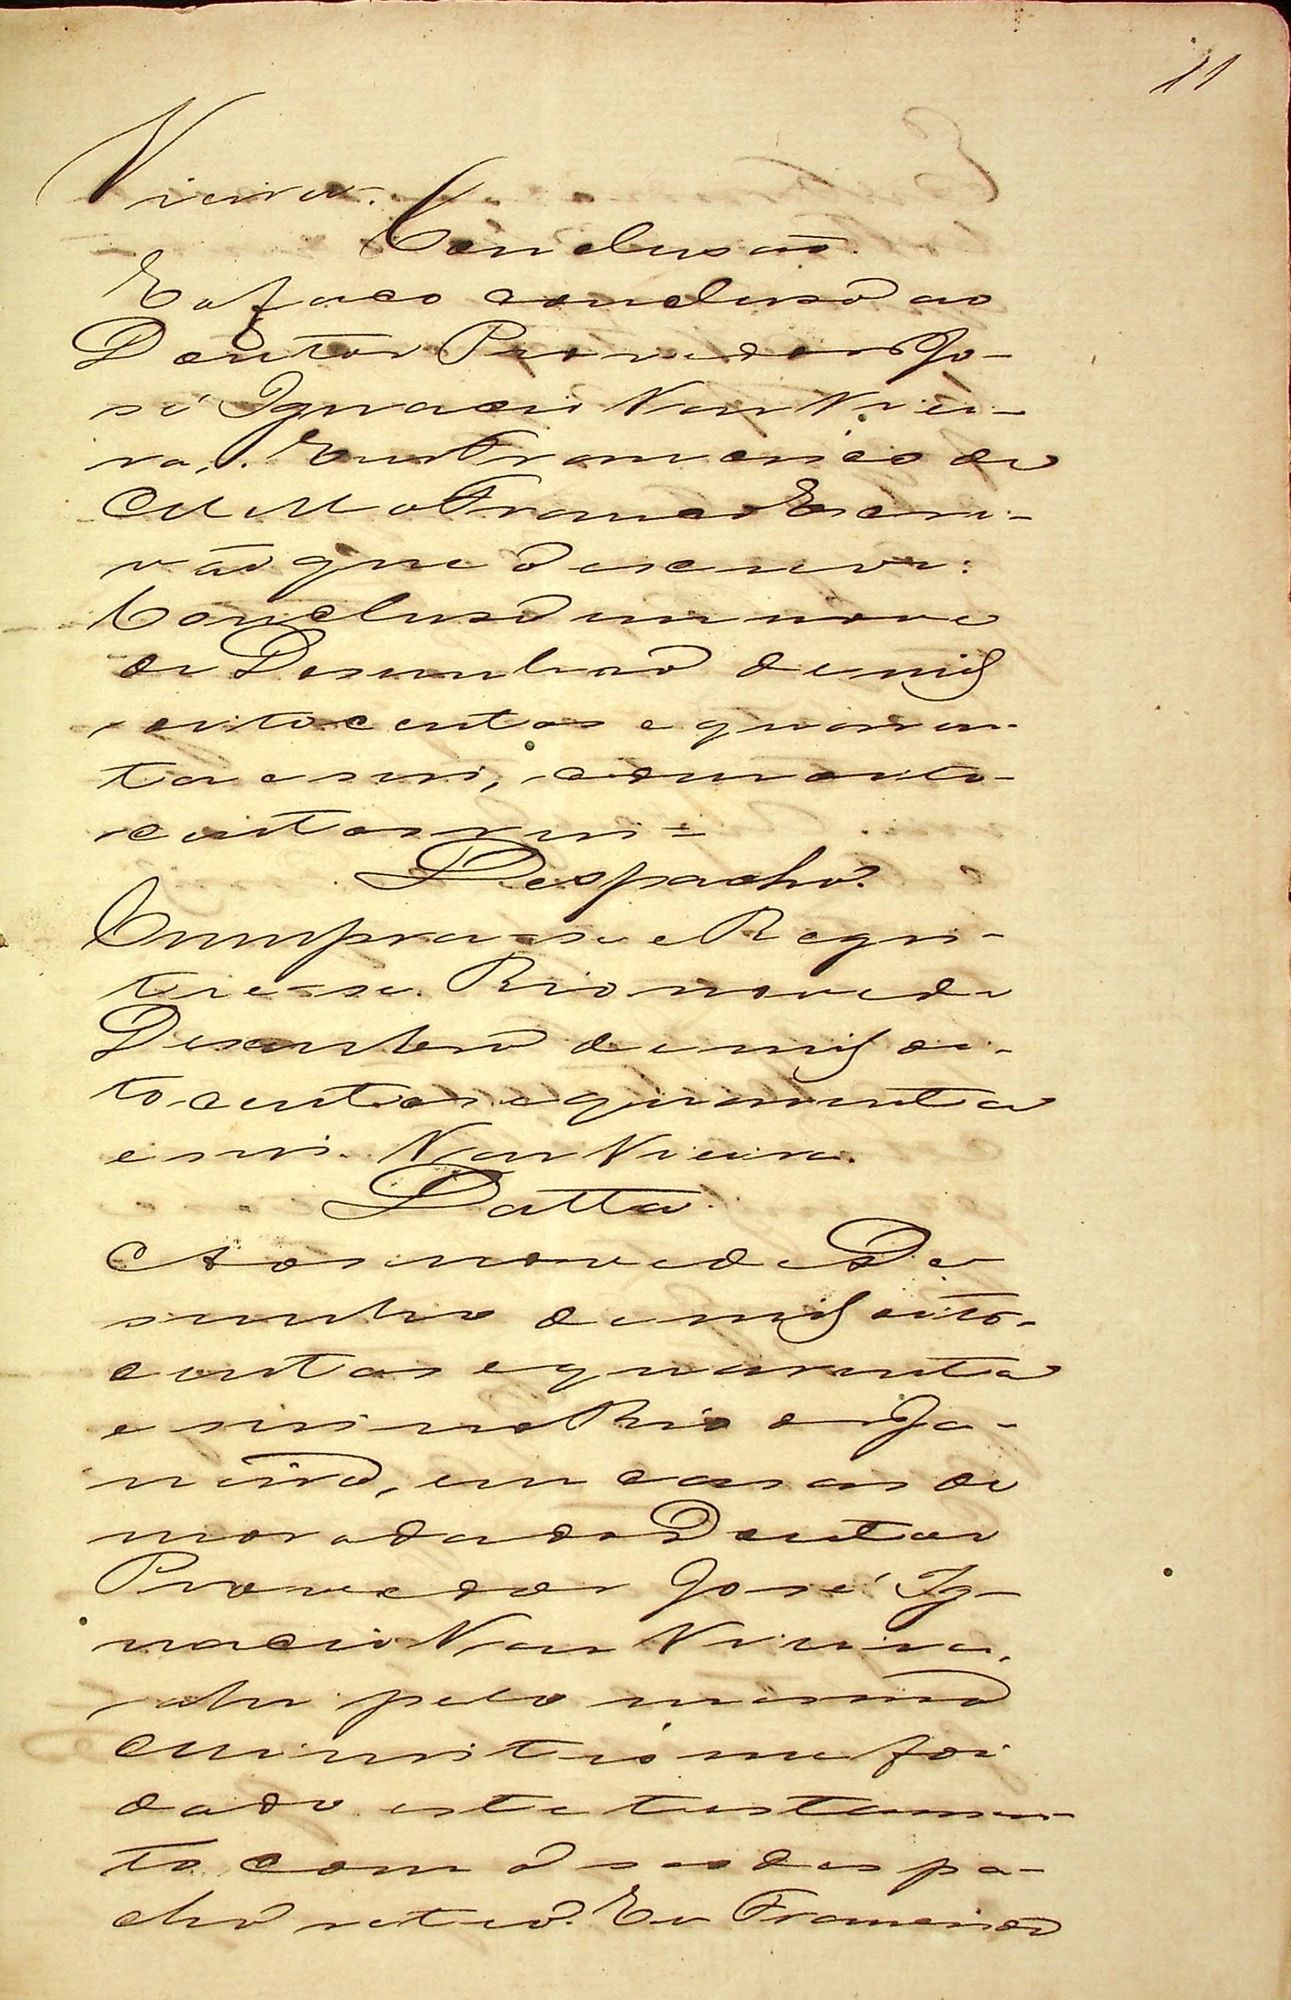 11
Vieira.
Conclusaõ.
E o faço concluso ao
Doutor Provedor Jo-
sé Ignacio Vaz Viei-
ra. Eu Francisco de
Franco Escri-
vão que o escrevi.
Concluso em nove
de Desembro de mil
oitocentos e quaren-
ta e seis,
centos reis=
Despacho.
Cumpra-se e Regis-
tre-se. Rio nove de
Desembro de mil oi-
tocentos e quarenta
e seis. Vaz Vieira.
Datta.
Aos nove de De
sembro de mil oito-
centos e quarenta
e seis no Rio de Ja-
neiro, em casas de
morada do Doutor
Provedor José Ig-
nacio Vaz Vieira,
ahi pelo mesmo
Ministro me foi
dado este testamen-
to com o seo despa-
cho retro. Eu Francisco